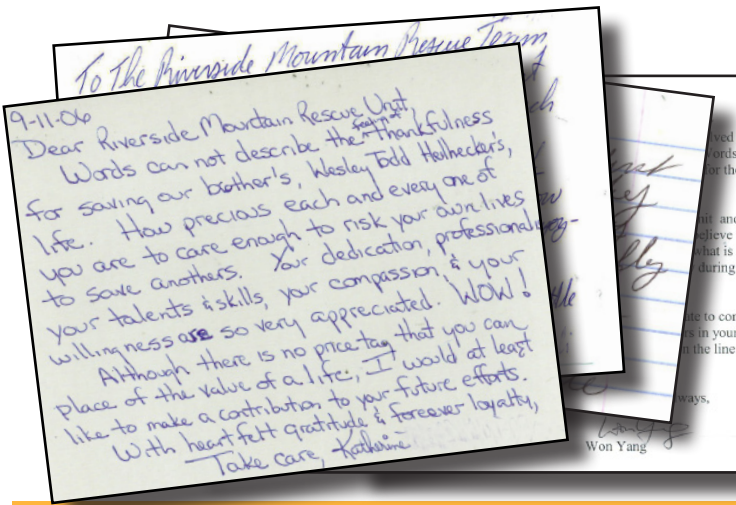 To The Riverside Mountain Rescue Team
9-11-06
Dear Riverside Mountain Rescue Unit,
Words can not describe the thankfulness
for saving our brother's, Wesley Todd Heilhecker's,
life. How precious each and every one of
you are to care enough to risk your own lives
to save anothers. Your dedication, professionalism,
your talents & skills, your compassion, & your
willingness are so very appreciated. WOW!
Although there is no price tag that you can
place of the value of a life, I would at least
like to make a contribution to your future efforts.
With heartfelt gratitude & foreever loyalty,
Take care, Katherine
ved
ords
or the
nit and
elieve
what is
during
te to con
rs in your
n the line
ways,
Won Yang